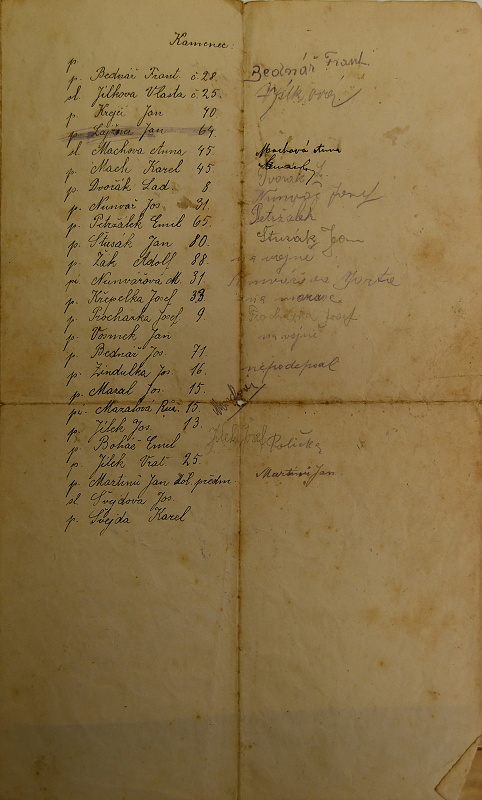 Kamenec:
p.
p. Bednář Frant. č 28. Bednář Frant.
sl. Jílkova Vlasta č. 25.
p. Krejčí Jan 70
p. Jan 64.
sl. Machova Anna 45. Machová Anna
p. Mach Karel 45.
p. Dvořák Lad. 8 Dvořák
p. Nunvář Jos. 31. Nunvář Josef
p. Petržálek Emil 65. Petržálek
p. Štusák Jan 80. Štusák Jan
p. Žák Adolf 88. na vojně
pí. Nunvářová M. 31.
p. Křepelka Josef 33.
p. Procházka Josef 9. Procházka Josef
p. Vosmek Jan na vojně
p. Bednář Jos. 71.
p. Zindulka Jos. 16. nepodepsal
p. Mazal Jos. 15.
pí. Mazalová Růž. 15.
p. Jílek Jos. 13
p. Boháč Emil Polička
p. Jílek Vrat. 25.
p. Martinů Jan dol. předm. Martinů Jan
sl. Švejdova Jos.
p. Švejda Karel